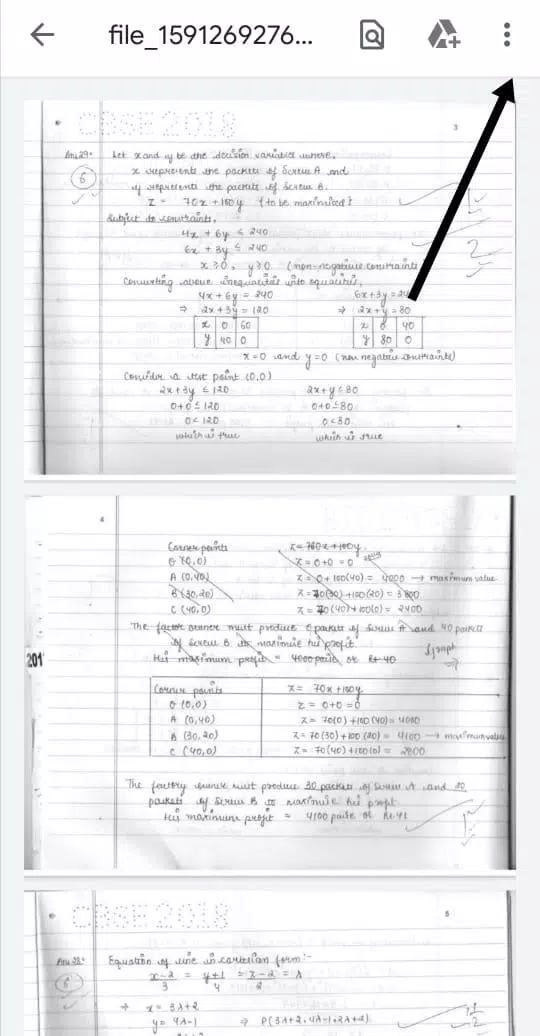 file_1591269276...
CBSE 2018
3
Ans 29.
Let x and y be the decision variables where,
6
x represents the packets of Screw A and
y represents the packets of Screw B.
Z = 70x + 100y {to be maximised}
Subject to constraints,
4x + 6y ≤ 240
6x + 3y ≤ 240
x ≥ 0, y ≥ 0 (non-negative constraints
Converting above inequalities into equalities,
4x + 6y = 240 6x + 3y = 24
⇒ 2x + 3y = 120 ⇒ 2x + y = 80
x 0 60 x 0 40
y 40 0 y 80 0
x=0 and y=0 (non negative constraints)
Consider a test point (0,0)
2x + 3y ≤ 120 2x + y ≤ 80
0+0 ≤ 120 0+0 ≤ 80
0 < 120 0 < 80
which is true which is true
4
Corner points Z = 100y
O (0,0) Z = 0+0 = 0
A (0,40) Z = 0 + 100(40) = 4000 → maximum value
B (30,20) Z = 70(30) + 100(20) = 3800
C (40,0) Z = 70(40) + 100(0) = 2400
The factor owner must produce 0 packets of Screw A and 40 packets
of Screw B to maximise his profit
His maximum profit = 4000 paise or Rs 40
201
Corner points Z = 70x + 100y
O (0,0) Z = 0+0 = 0
A (0,40) Z = 70(0) + 100(40) = 4000
B (30,20) Z = 70(30) + 100(20) = 4100 → maximum value
C (40,0) Z = 70(40) + 100(0) = 2800
The factory owner must produce 30 packets of Screw A and 20
packets of Screw B to maximise his profit
His maximum profit = 4100 paise or Rs 41
CBSE 2018
5
Ans 28.
Equation of line in cartesian form:-
6
x-2/3 = y+1/4 = z-2/2 = λ
⇒ x = 3λ+2
y = 4λ-1 ⇒ P(3λ+2, 4λ-1, 2λ+2)